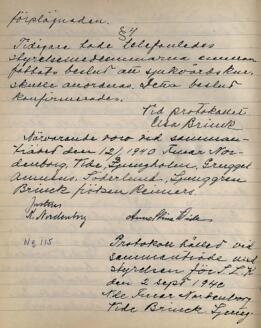 förplägnaden.
§4
Tidigare hade telefonledes
styrelsemedlemmarna emellan
fattats beslut att sjukvårdskurs
skulle anordnas. Detta beslut
konfirmerades.
Vid protokollet
Brinck
Närvarande voro vid samman-
trädet den 12/1 1940 Fruar Nor-
denborg, Tide, Ljungholm, Gregget
Söderlund, Ljunggren
Brinck fröken Reimers.
Justeras
K. Nordenborg
No 115
Protokoll hållet vid
sammanträde med
styrelsen för
den 2 sept 1940
Nde Fruar Nordenborg
Tide Brinck Ljung-